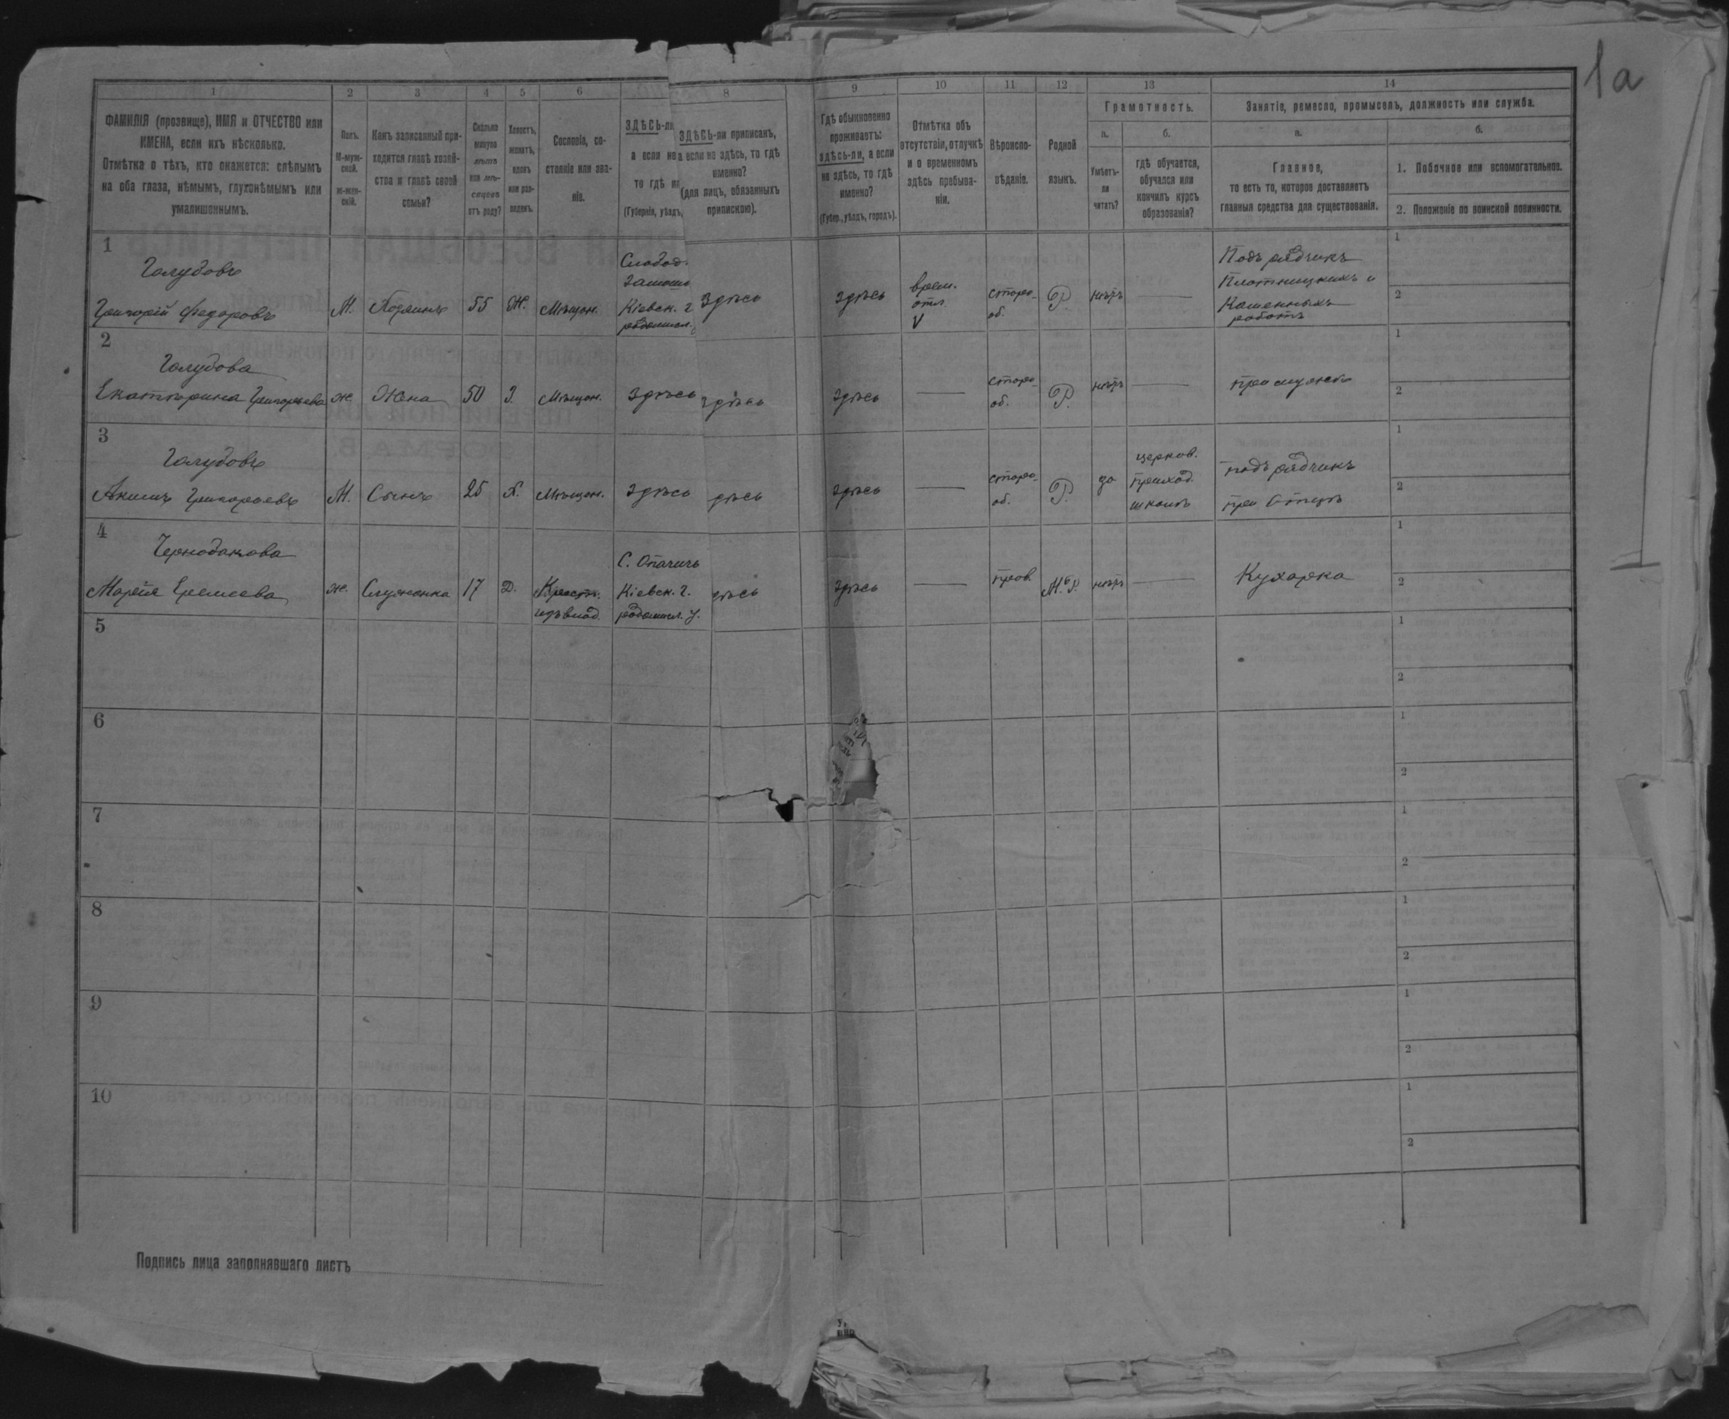 1а
1 2 3 4 5 6 8 9 10 11 12 13 14
ФАМИЛІЯ (прозвище), ИМЯ и ОТЧЕСТВО или
ИМЕНА, если ихъ нѣсколько.
Отмѣтка о тѣхъ, кто окажется: слѣпымъ
на оба глаза, нѣмымъ, глухонѣмымъ или
умалишеннымъ.
Полъ.
М-муж-
ской.
Ж-жен-
скій.
Какъ записанный при-
ходится главѣ хозяй-
ства и главѣ своей
семьи?
Сколько
минуло
лѣтъ
или мѣ-
сяцевъ
отъ роду?
Холостъ,
женатъ,
вдовъ
или раз-
веденъ.
Сословіе, со-
стояніе или зва-
ніе.
ЗДѢСЬ-ли
а если не
то гдѣ
(Губернія, уѣздъ,
ЗДѢСЬ-ли приписанъ,
а если не здѣсь, то гдѣ
именно?
(для лицъ, обязанныхъ
припискою).
Гдѣ обыкновенно
проживаетъ:
здѣсь-ли, а если
не здѣсь, то гдѣ
именно?
(Губер., уѣздъ, городъ).
Отмѣтка объ
отсутствіи, отлучкѣ
и о временномъ
здѣсь пребыва-
ніи.
Вѣроиспо-
вѣданіе.
Родной
языкъ.
Грамотность.
а.
Умѣетъ-
ли
читать?
б.
гдѣ обучается,
обучался или
кончилъ курсъ
образованія?
Занятіе, ремесло, промыселъ, должность или служба.
а.
Главное,
то есть то, которое доставляетъ
главныя средства для существованія.
б.
1. Побочное или вспомогательное.
2. Положеніе по воинской повинности.
1
Голубовъ
Григорій Федоровъ
М. Хозяинъ 55 Ж. Мѣщан.
Слобод.
Замошье
Кіевск. г
радомысл.
здѣсь здѣсь
врем.
отл.
V
старо-
об.
Р. нѣтъ
Подърядчикъ
Плотницкихъ и
Каменныхъ
работъ
1
2
2
Голубова
Екатерина Григорьева ж Жена 50 З. Мѣщан. здѣсь здѣсь здѣсь
старо-
об.
Р. нѣтъ
при мужѣ
1
2
3
Голубовъ
Акимъ Григорьевъ М. Сынъ 25 Х. Мѣщан. здѣсь дѣсь здѣсь
старо-
об.
Р. да
церков.
приход.
школѣ
подърядчикъ
при Отцѣ
1
2
4
Чернодакова
Марѳія Еремеева ж. Служанка 17 Д.
Крест.
изъ влад.
С. Опачичь
Кіевск. г.
радомысл. у.
дѣсь здѣсь
прав. М.Р. нѣтъ
Кухарка
1
2
5
1
2
6
1
2
7
1
2
8
1
2
9
1
2
10
1
2
Подпись лица заполнявшаго листъ